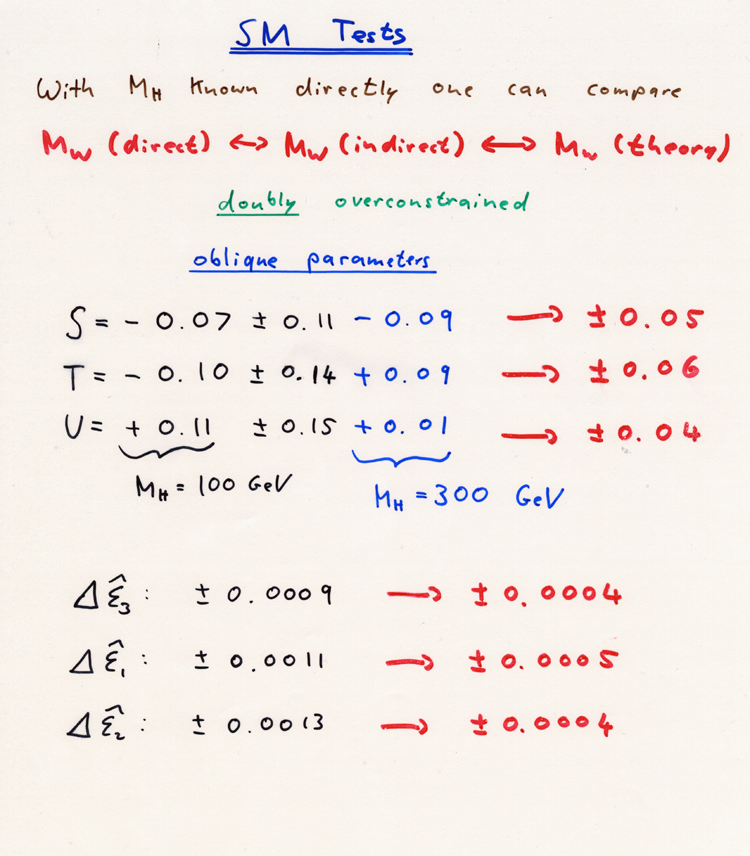 SM Tests
With M_H known directly one can compare
M_W (direct) ↔ M_W (indirect) ↔ M_W (theory)
doubly overconstrained
oblique parameters
S = - 0.07 ± 0.11 - 0.09 → ± 0.05
T = - 0.10 ± 0.14 + 0.09 → ± 0.06
U = + 0.11 ± 0.15 + 0.01 → ± 0.04
M_H = 100 GeV M_H = 300 GeV
Δ ε̂_3 : ± 0.0009 → ± 0.0004
Δ ε̂_1 : ± 0.0011 → ± 0.0005
Δ ε̂_2 : ± 0.0013 → ± 0.0004